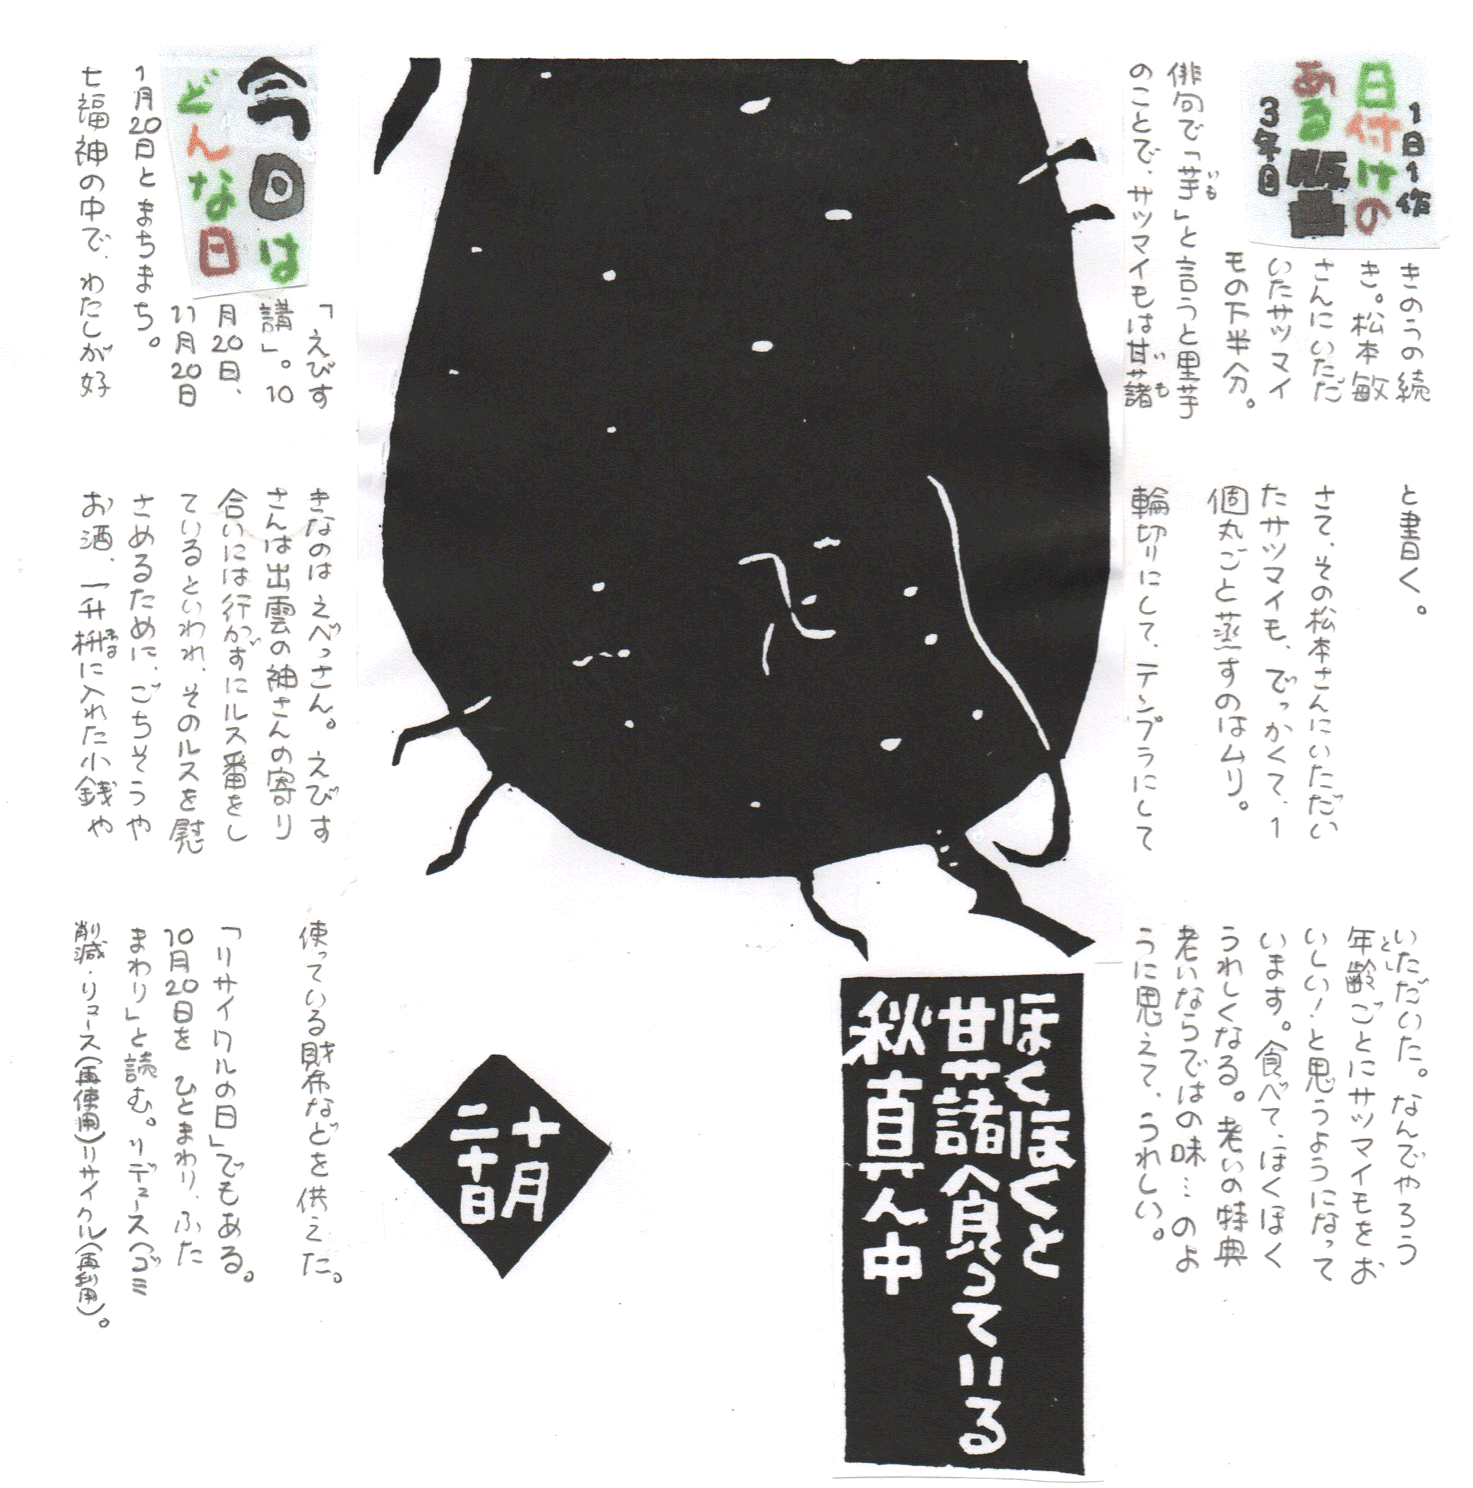 1日1作
日付けの
ある版画
3年目
きのうの続
き。松本敏
さんにいただ
いたサツマイ
モの下半分。
俳句で「芋」と言うと里芋
いも
のことで、サツマイモは甘藷
いも
と書く。
さて、その松本さんにいただい
たサツマイモ、でっかくて、1
個丸ごと蒸すのはムリ。
輪切りにして、テンプラにして
いただいた。なんでやろう
年齢ごとにサツマイモをお
とし
いしい!と思うようになって
います。食べて、ほくほく
うれしくなる。老いの特典
老いならではの味…のよ
うに思えて、うれしい。
ほくほくと
甘藷食っている
秋真ん中
十月
二十日
今日は
どんな日
「えびす
講」。10
月20日、
11月20日
1月20日とまちまち。
七福神の中で、わたしが好
きなのはえべっさん。えびす
さんは出雲の神さんの寄り
合いには行かずにルス番をし
ているといわれ、そのルスを慰
さめるために、ごちそうや
お酒、一升枡に入れた小銭や
ます
使っている財布などを供えた。
「リサイクルの日」でもある。
10月20日を ひとまわり、ふた
まわり」と読む。リデュース(ゴミ
削減・リユース(再使用)リサイクル(再利用)。